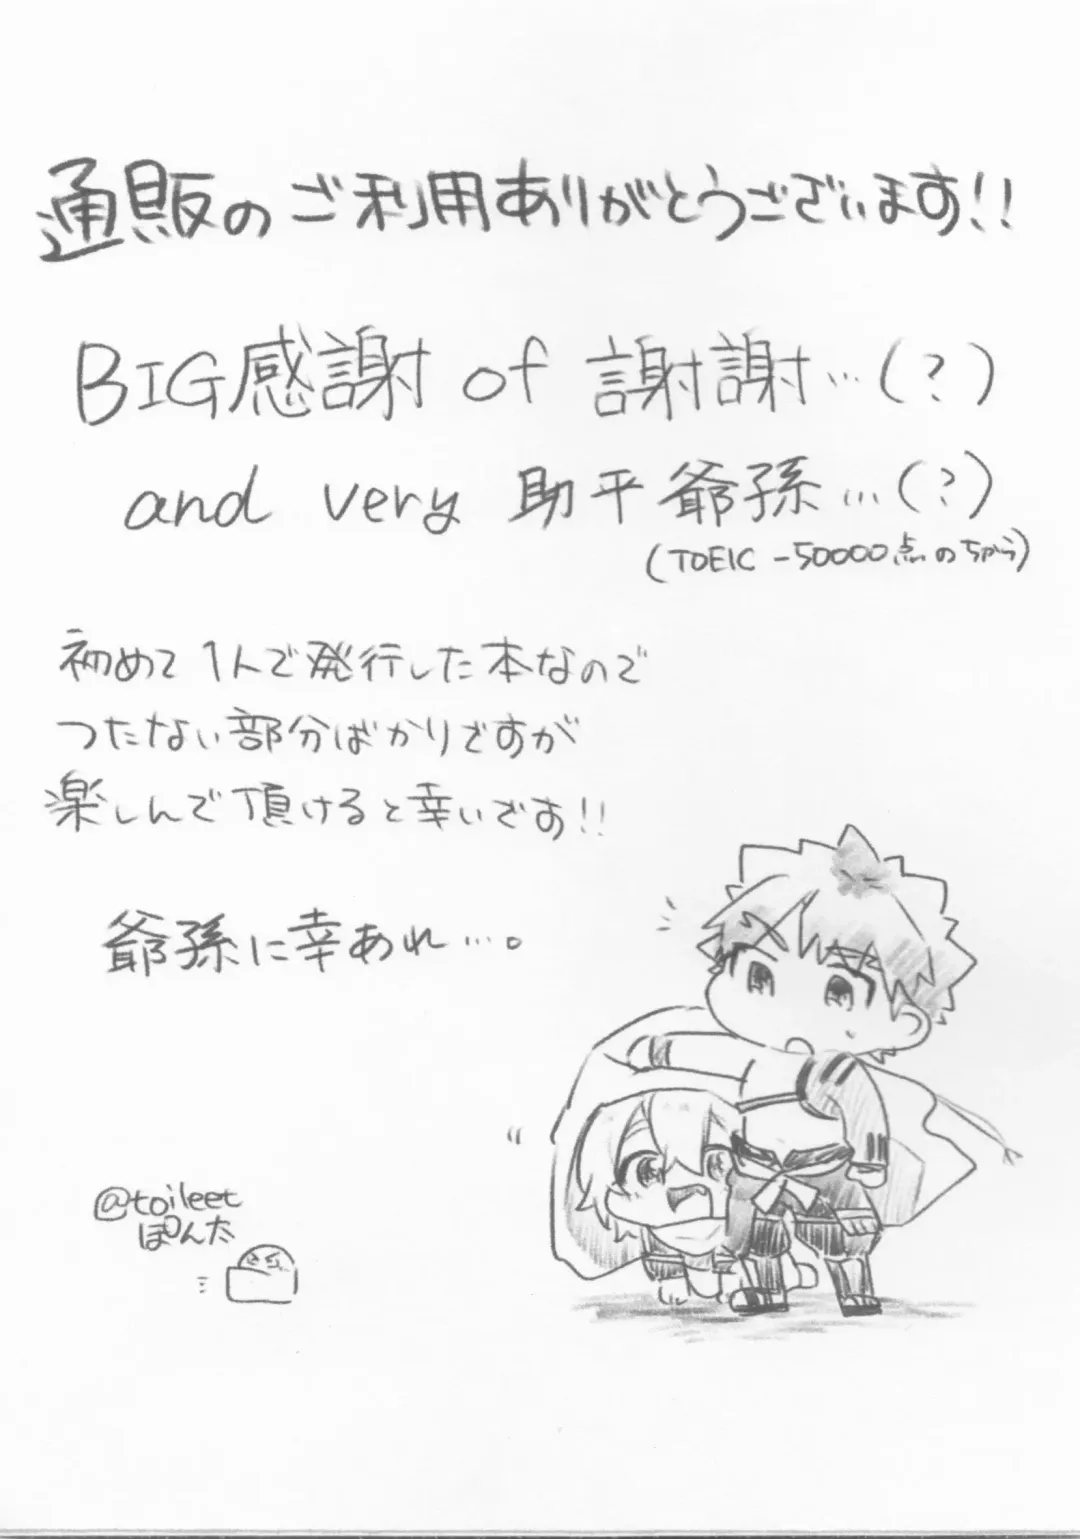 通販のご利用ありがとうございます!!
BIG感謝 of 謝謝…(?)
and very 助平爺孫…(?)
(TOEIC -50000点のちから)
初めて1人で発行した本なので
つたない部分ばかりですが
楽しんで頂けると幸いです!!
爺孫に幸あれ…。
@toileet
ぽん太